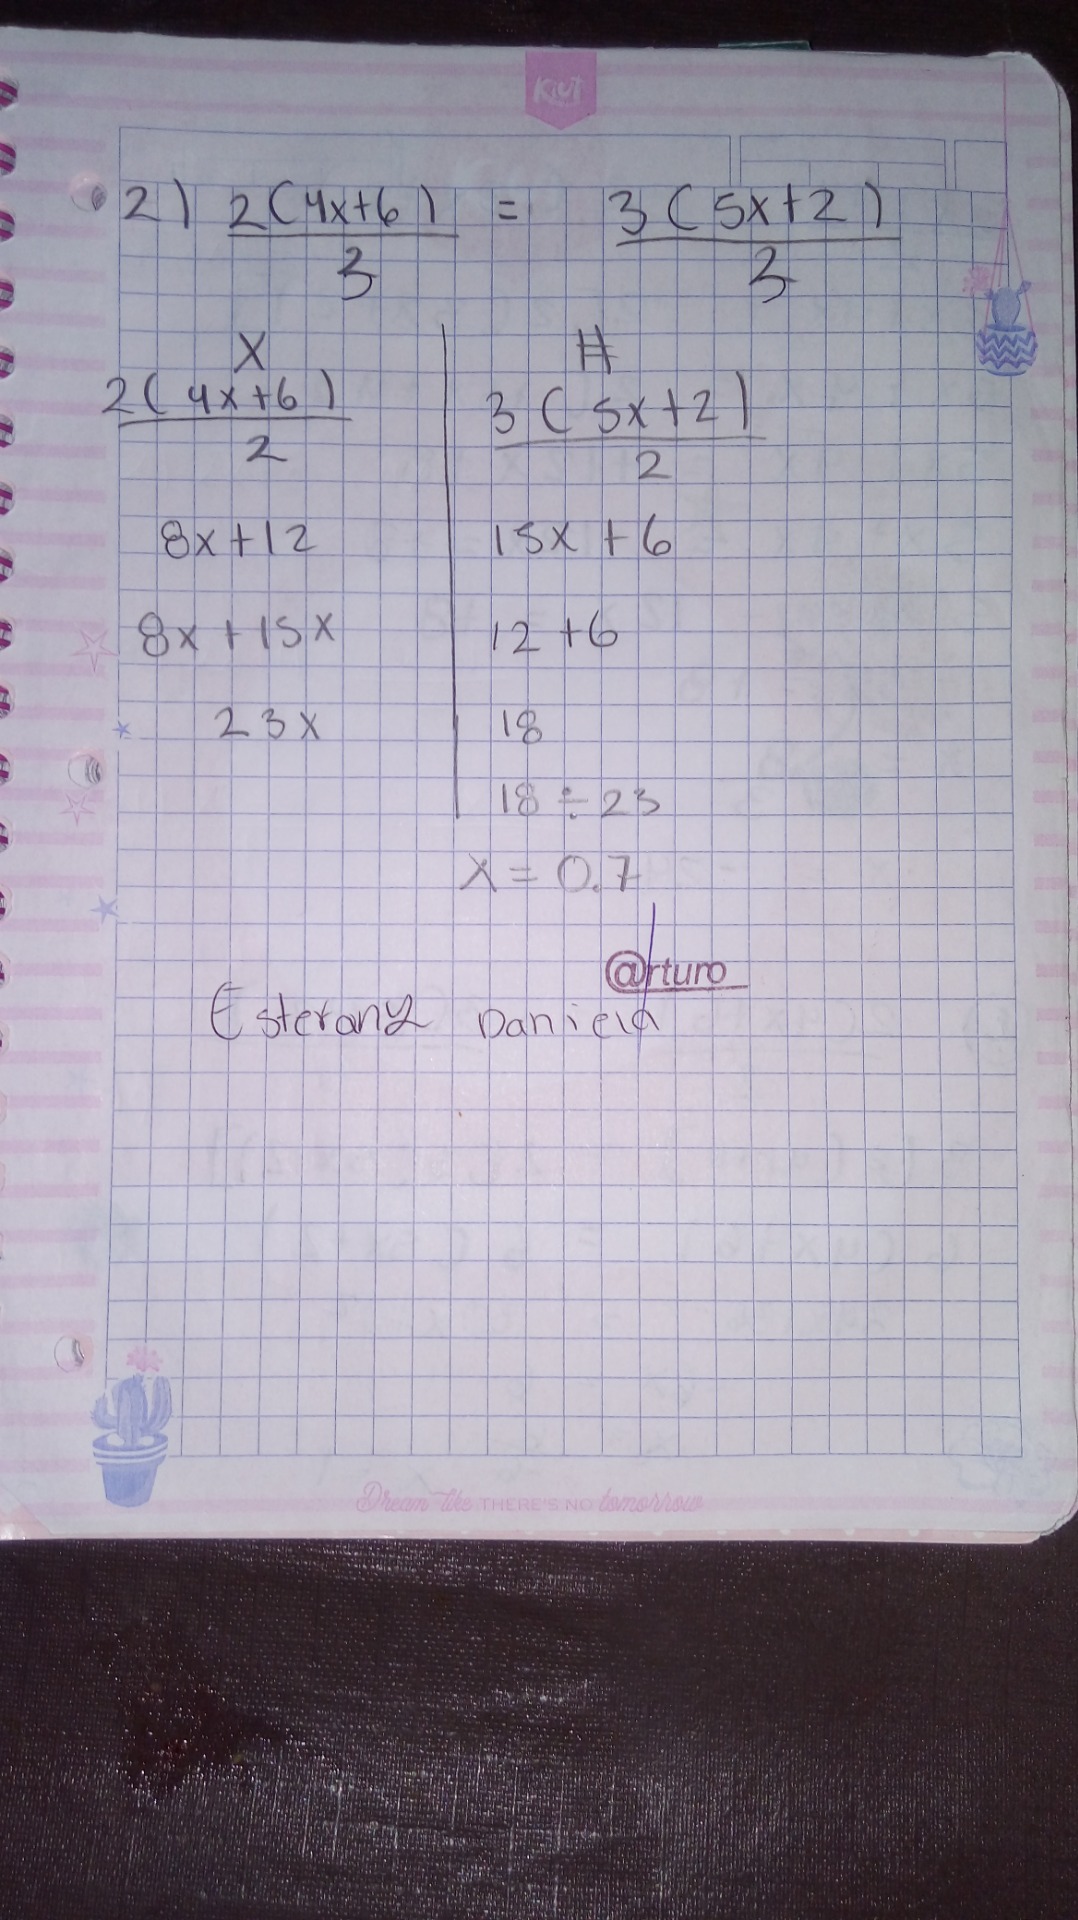 Kiut
2) 2(4x+6) = 3(5x+2)
3 3
X #
2(4x+6) 3(5x+2)
2 2
8x+12 15x+6
8x+15x 12+6
23x 18
18÷23
x=0.7
@rturo
Esterany Daniela
Dream like THERE'S NO tomorrow